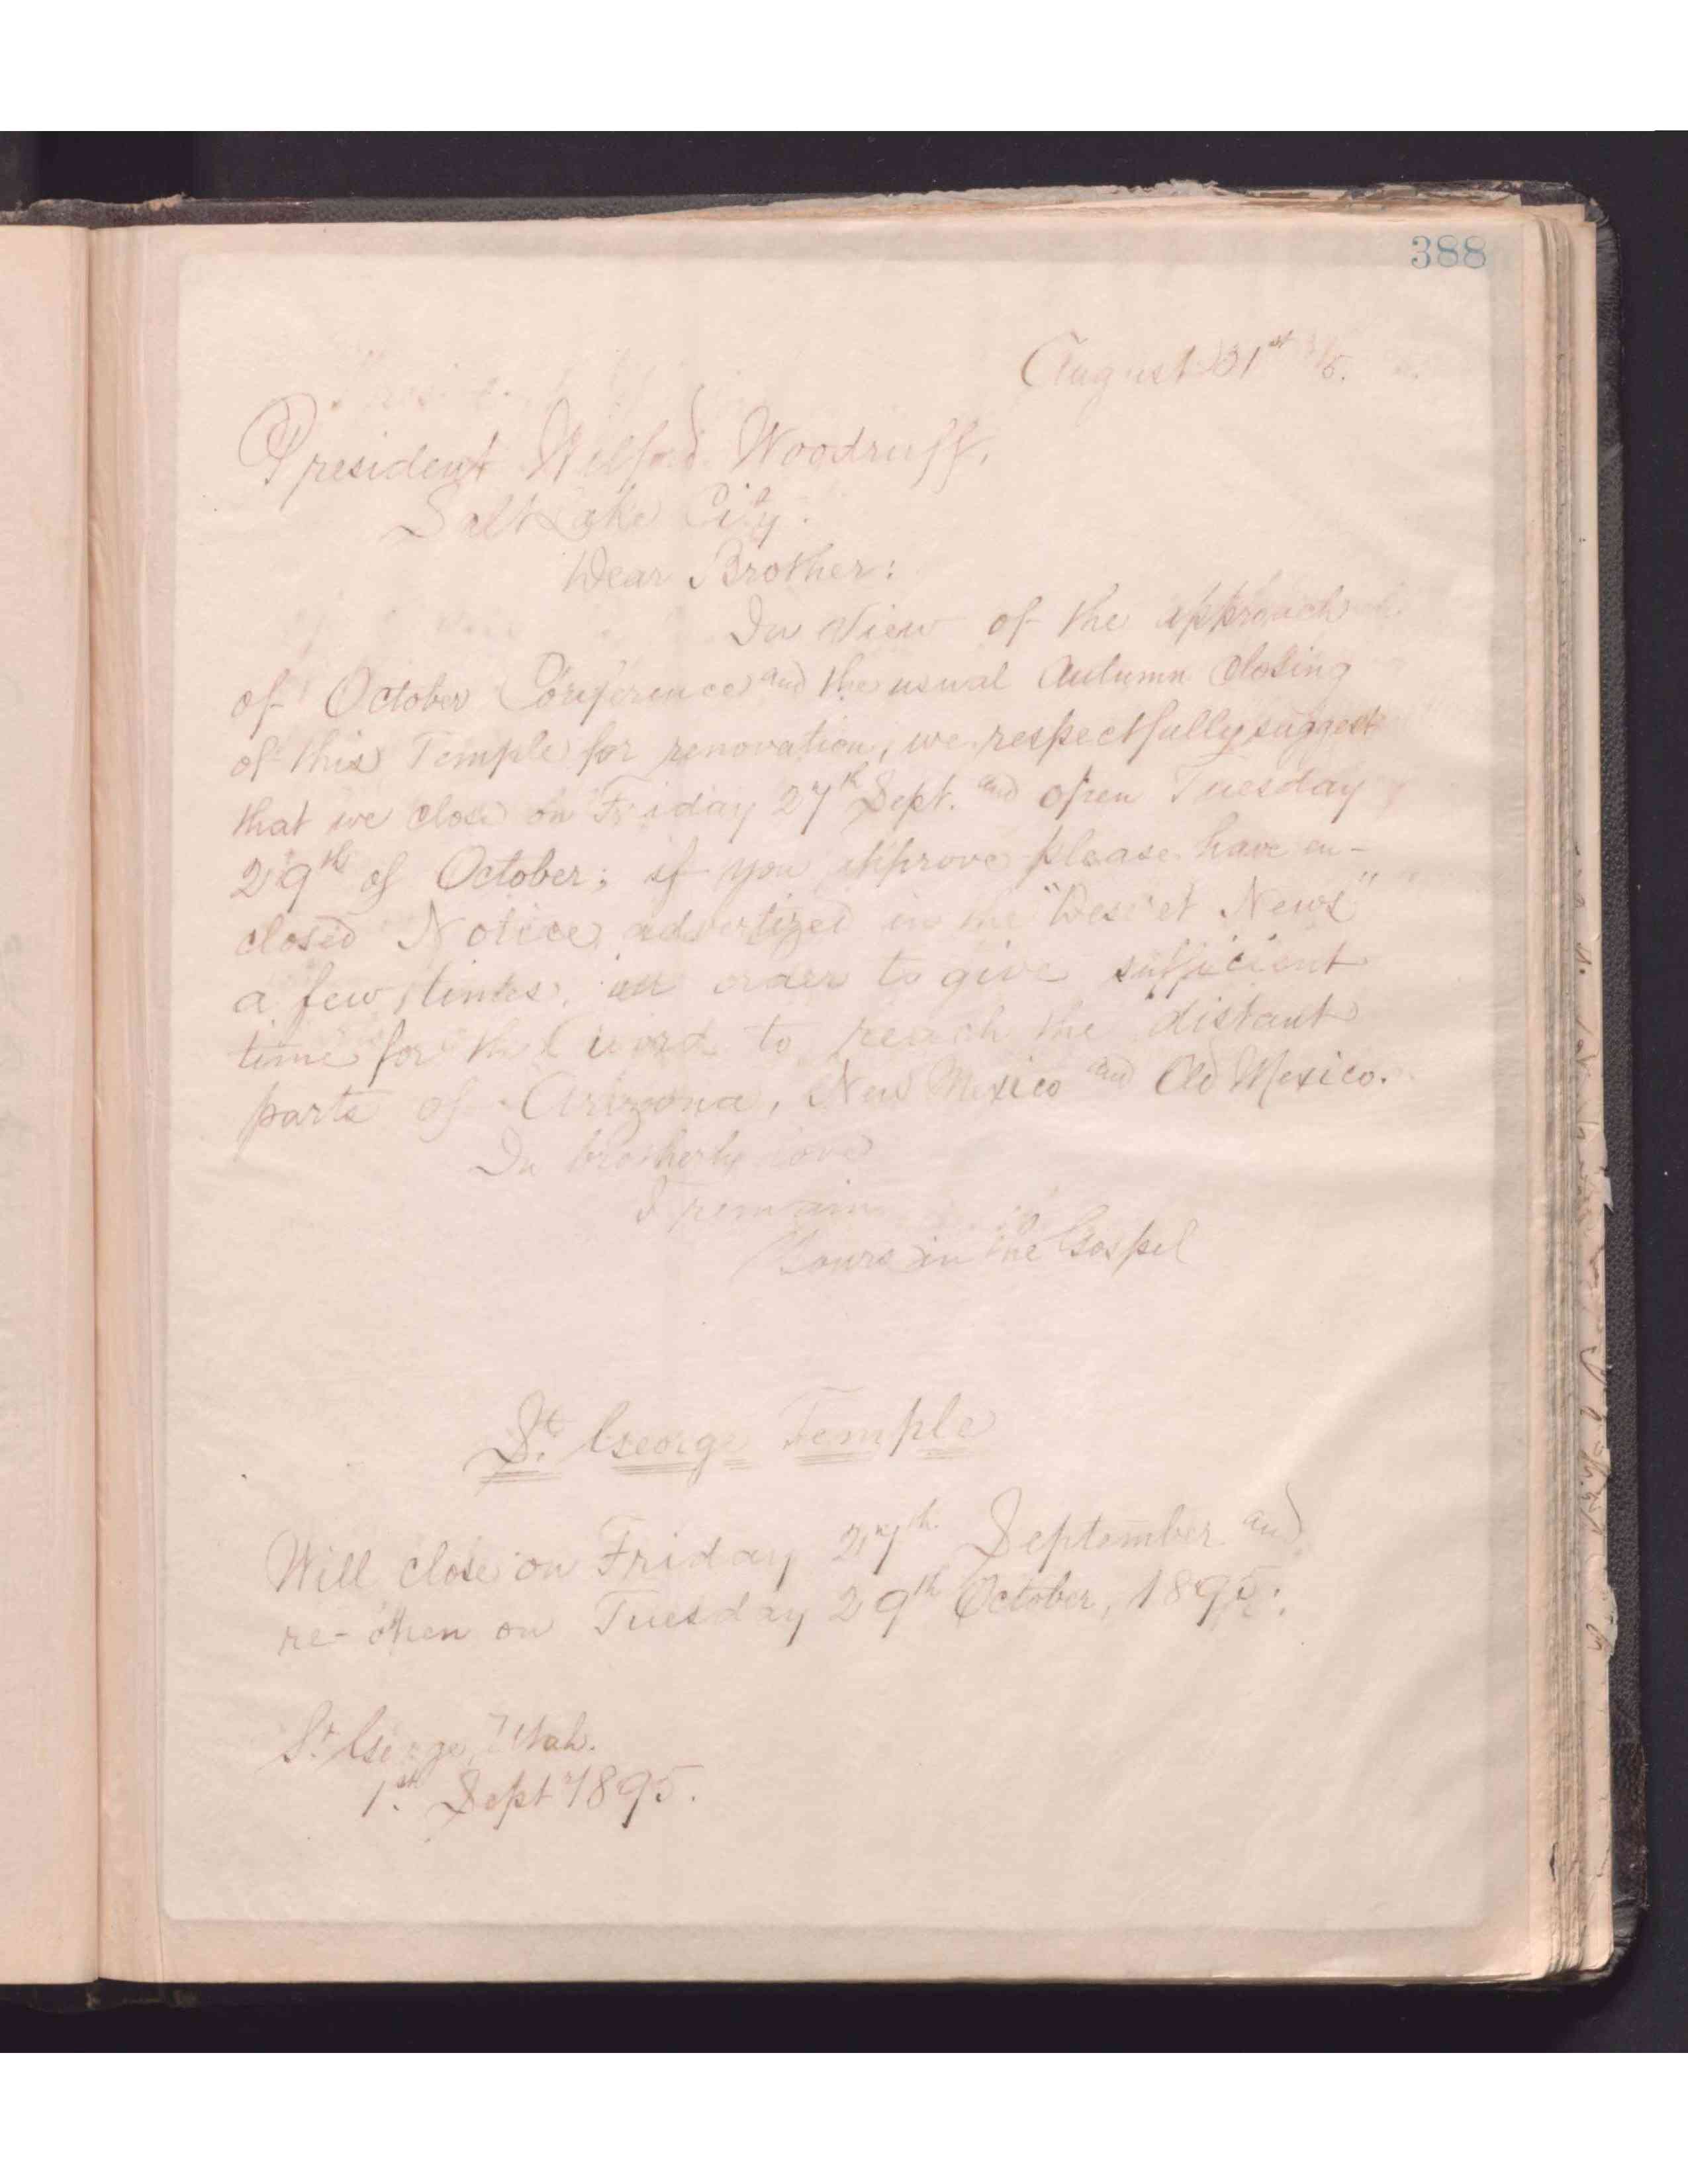 388
August 31st
President Wilford Woodruff,
Salt Lake City.
Dear Brother:
In view of the approach
of October Conference and the usual Autumn Closing
of this Temple for renovation, we respectfully suggest
that we close on Friday 27th Sept. and open Tuesday
29th of October; if you approve please have en-
closed Notice advertized in the "Deseret News"
a few times, in order to give sufficient
time for the word to reach the distant
parts of Arizona, New Mexico and Old Mexico.
In brotherly love
I remain
Yours in the Gospel
St. George Temple
Will close on Friday 27th September and
re-open on Tuesday 29th October, 1895.
St. George, Utah.
1st. Sept 1895.